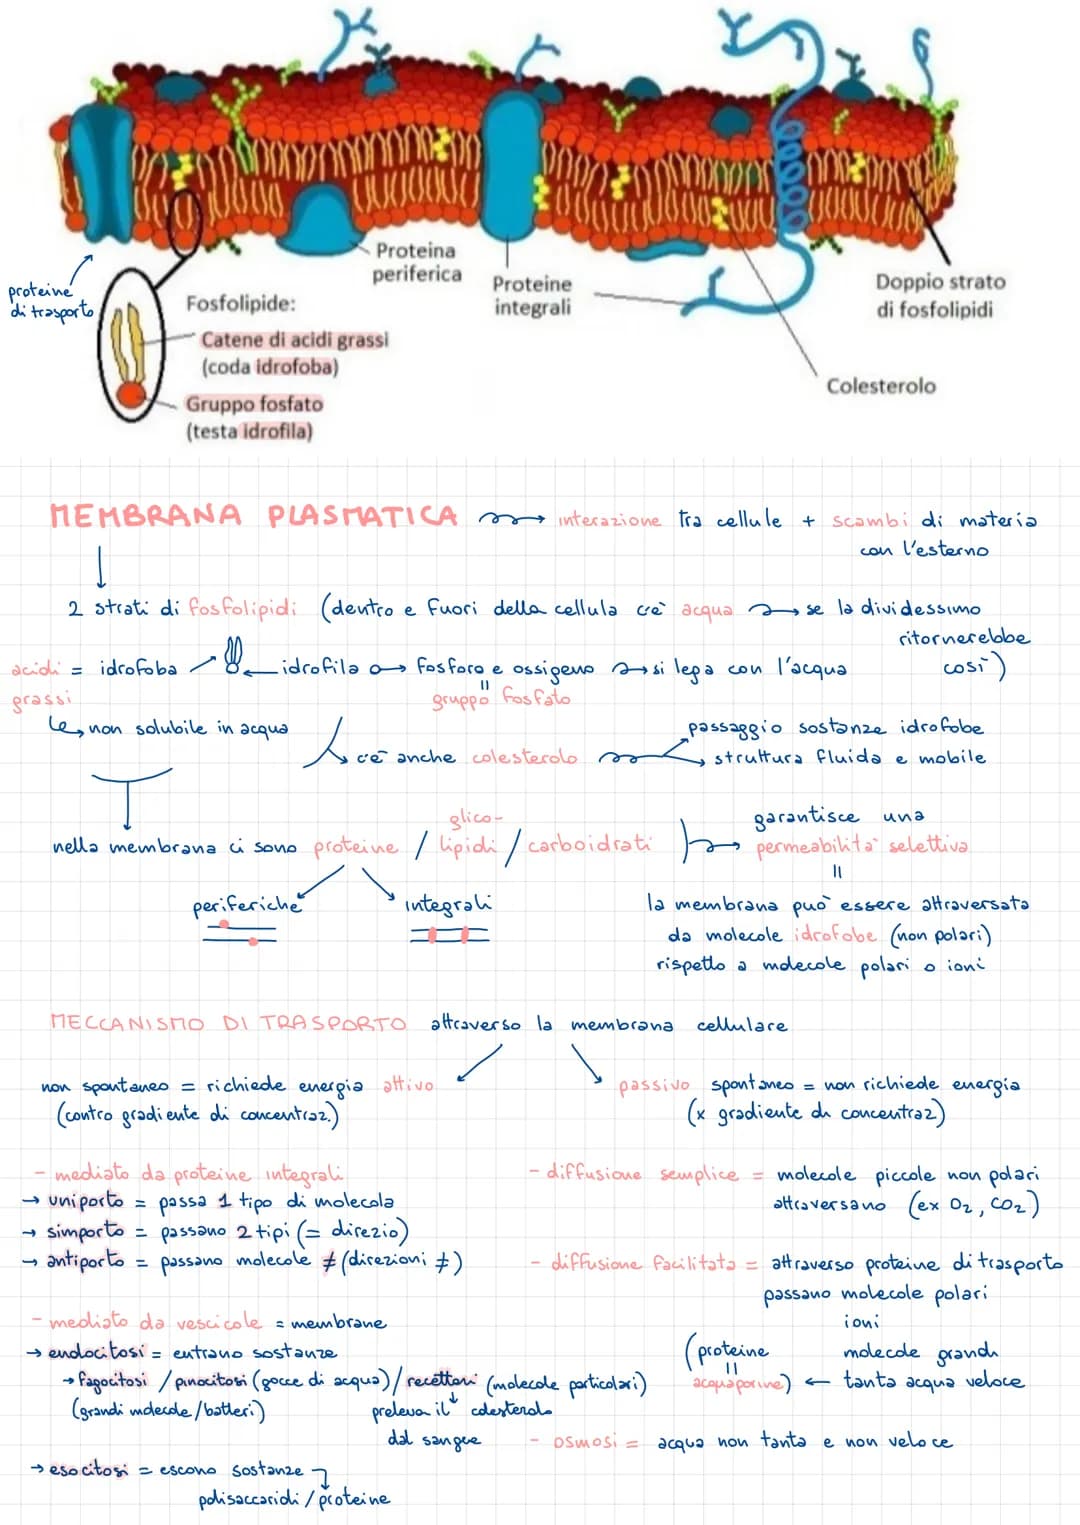 Proteina
periferica
Proteine
integrali
Doppio strato
di fosfolipidi
Colesterolo
proteine
di trasporto
Fosfolipide:
Catene di acidi grassi
(coda idrofoba)
Gruppo fosfato
(testa idrofila)
MEMBRANA PLASMATICA → interazione tra cellule + scambi di materia
con l'esterno
2 strati di fosfolipidi (dentro e fuori della cellula c'è acqua → se la dividessimo
ritornerebbe
così)
acidi = idrofoba
grassi
idrofila → fosforo e ossigeno → si lega con l'acqua
"
gruppo fosfato
↳ non solubile in acqua
c'è anche colesterolo
passaggio sostanze idrofobe
struttura fluida e mobile
nella membrana ci sono proteine / glico-lipidi / carboidrati
garantisce una
permeabilità selettiva
"
periferiche
integrali
la membrana può essere attraversata
da molecole idrofobe (non polari)
rispetto a molecole polari o ioni
MECCANISMO DI TRASPORTO attraverso la membrana cellulare
non spontaneo = richiede energia attivo
(contro gradiente di concentraz.)
passivo spontaneo = non richiede energia
(x gradiente di concentraz)
- mediato da proteine integrali
→ uniporto = passa 1 tipo di molecola
→ simporto = passano 2 tipi (= direzio)
→ antiporto = passano molecole ≠ (direzioni ≠)
- mediato da vescicole = membrane
→ endocitosi = entrano sostanze
→ fagocitosi / pinocitosi (gocce di acqua) / recettori (molecole particolari)
(grandi molecole / batteri)
preleva il colesterolo
dal sangue
→ esocitosi = escono sostanze
polisaccaridi / proteine
- diffusione semplice = molecole piccole non polari
attraversano (ex O2, CO2)
- diffusione facilitata = attraverso proteine di trasporto
passano molecole polari
ioni
molecole grandi
(proteine
"
acquaporine) ← tanta acqua veloce
- osmosi = acqua non tanta e non veloce